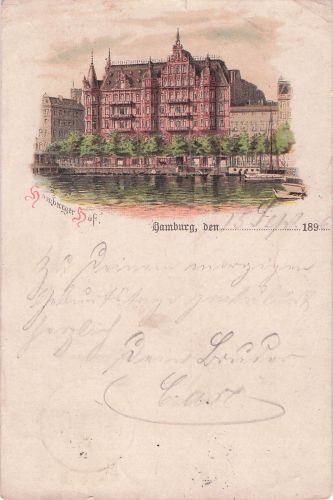 Hamburger Hof.
Hamburg, den 15 Sept 189
Zu Deinem morgigen
Geburtstag gratuliert
herzlich
Dein Bruder
Carl